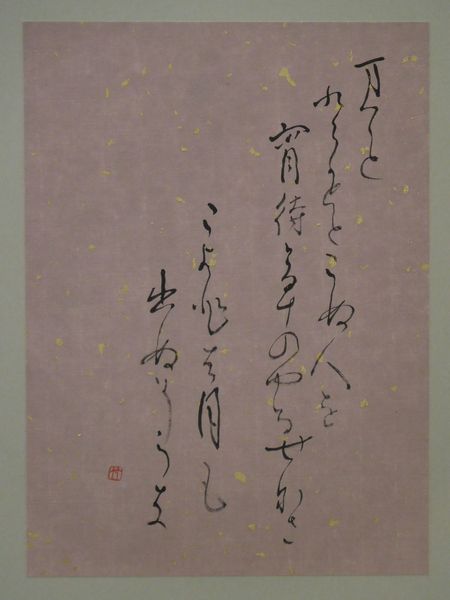 まてと
くらせとこぬ人を
宵待草のやるせなさ
こよひは月も
出ぬさうな